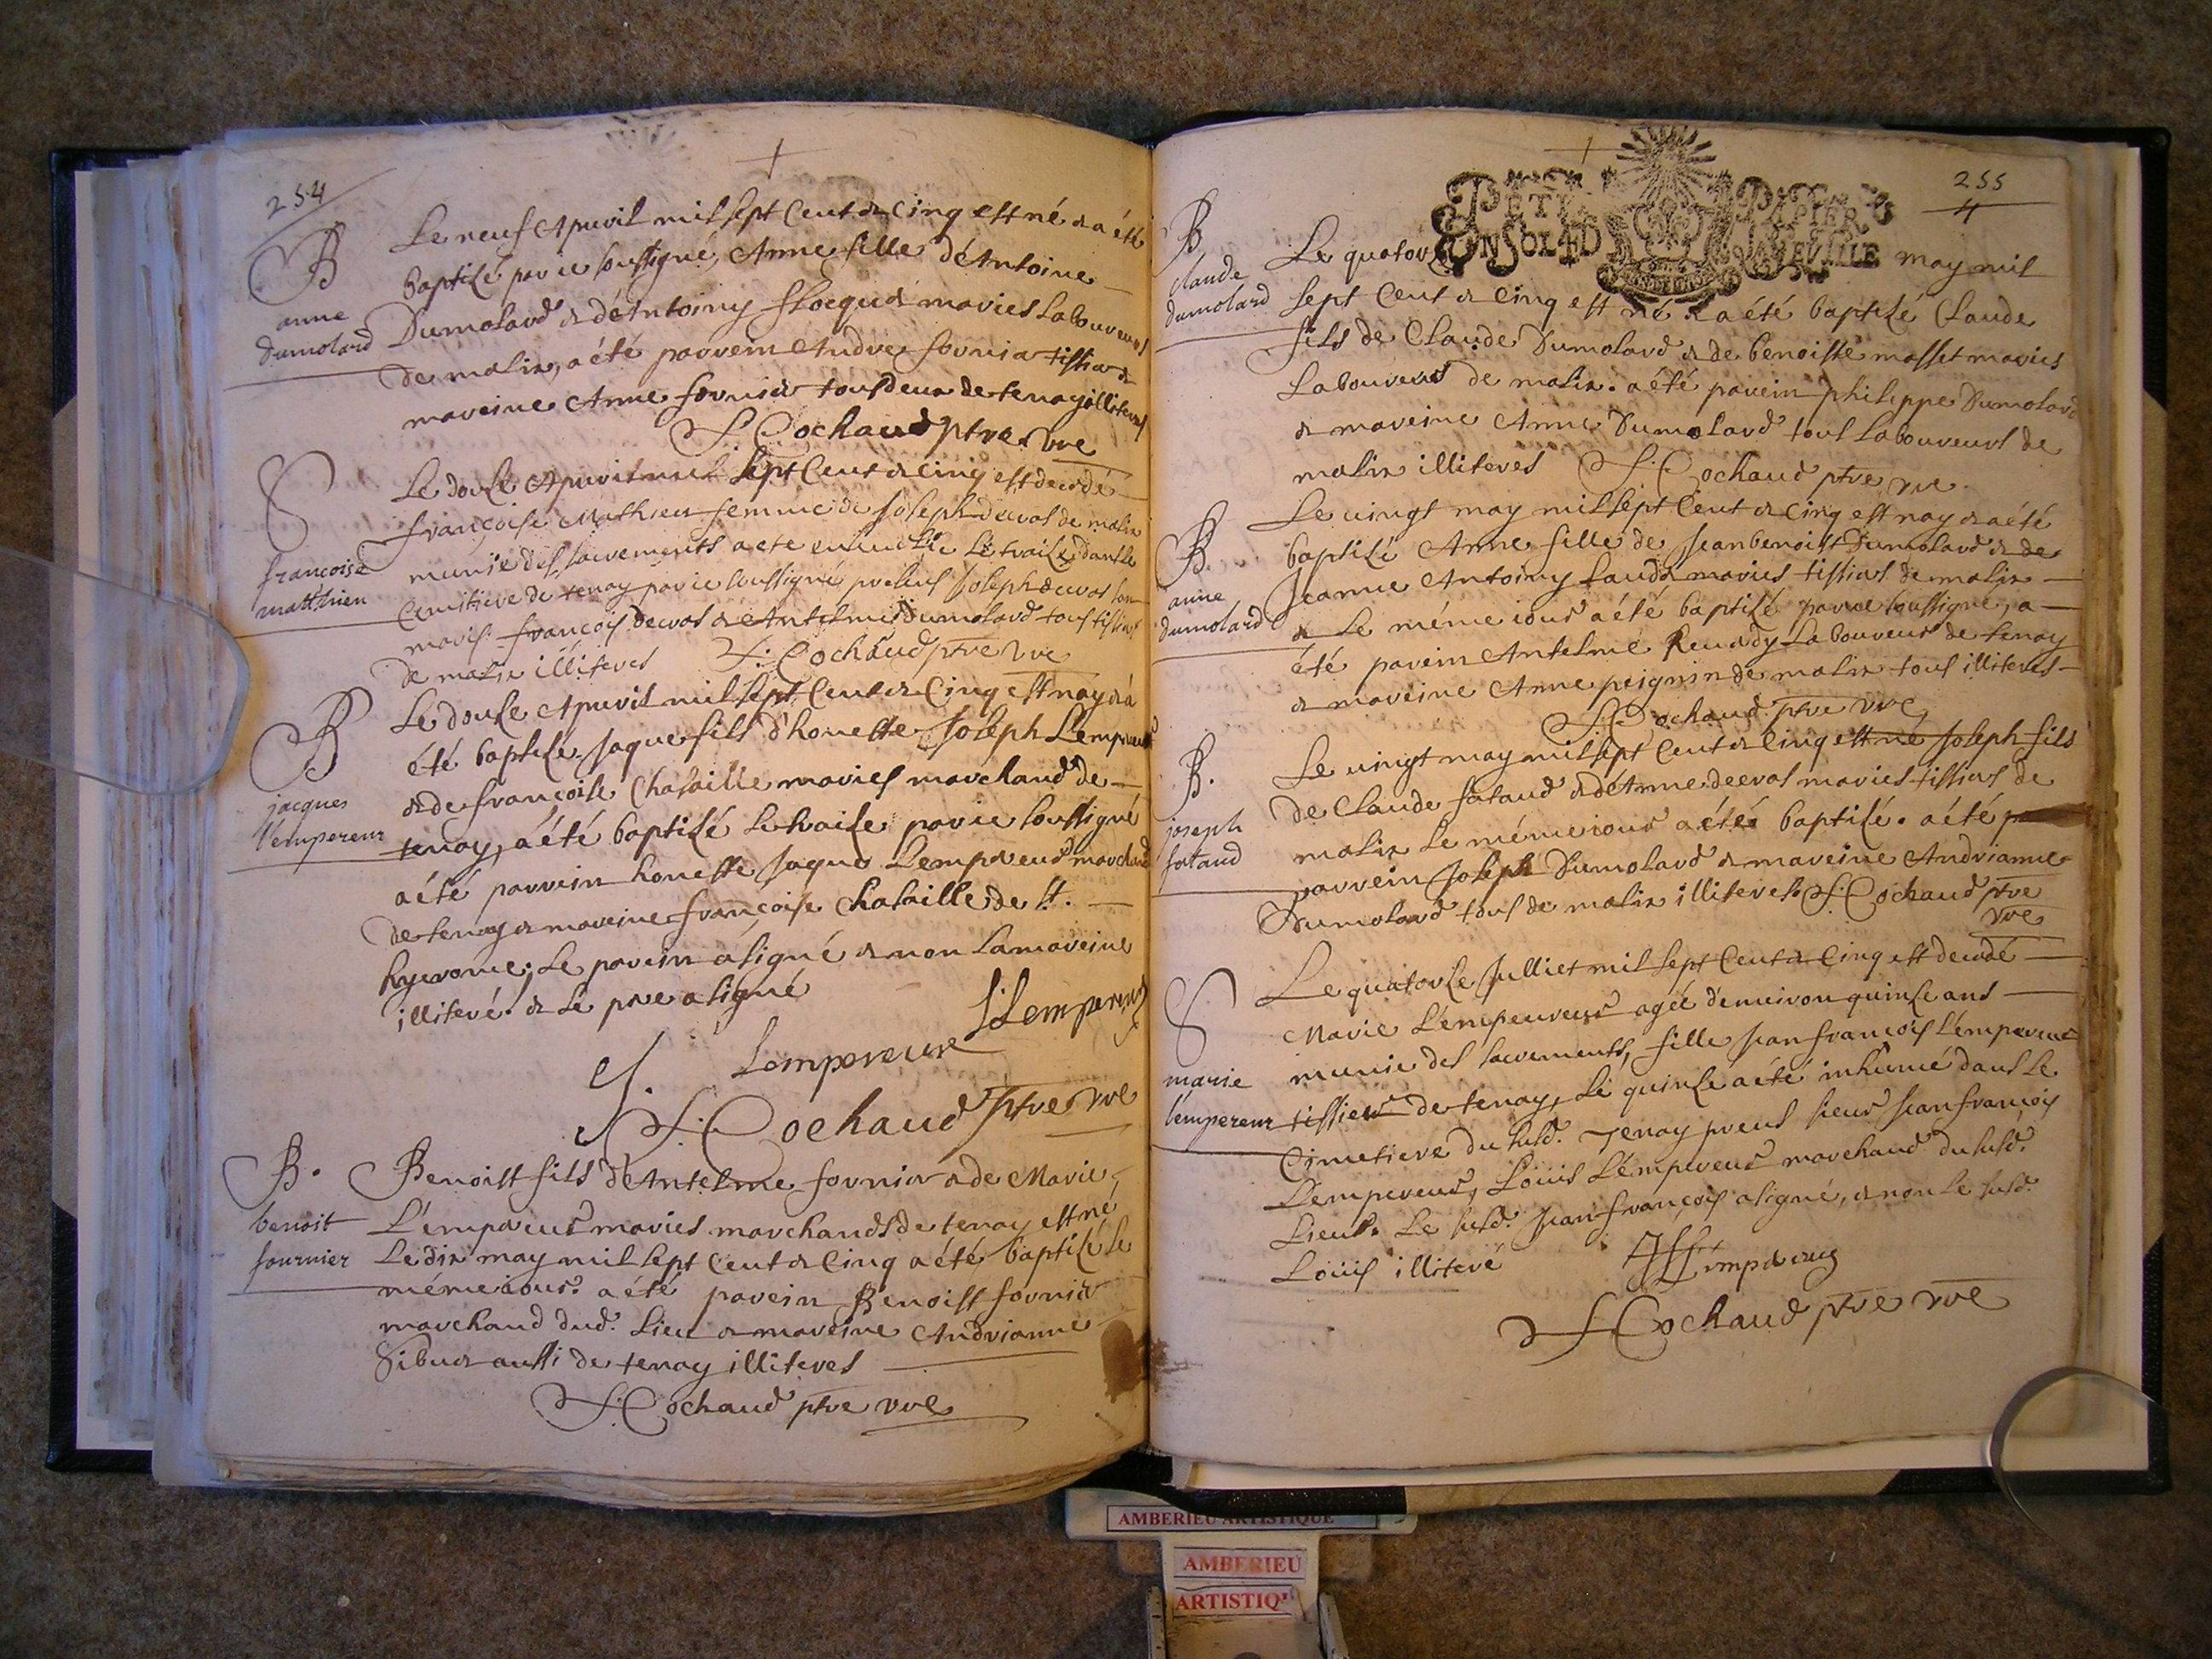 254
B
anne
dumolard
Le neuf Apuril mil sept Cent & Cinq est né & a été
baptisé par ie soussigné, Anne fille d'Antoine
Dumolard & d'Antoiny floque mariés Laboureurs
de malix, a été parrein Andre fornier tissier &
mareine Anne fornier tous deux de tenay illiteres
f: Cochaud ptre vre
S
francoise
matthieu
Le douse Apuril mil sept Cent & Cinq est decedé
françoise Mathieu femme de Joseph decros de malix
munie des sacrements a ete ensevelie le traise dans le
Cemitiere de tenay par ie soussigné presens Joseph decros son
maris françois decros & Antelme Dumolard tous tissiers
de malix illiteres f: Cochaud ptre vre
B
jacques
l'empereur
Le douse Apuril mil sept Cent & Cinq est nay & a
été baptisé Jaque fils d'honeste Joseph L'empereur
& de françoise Chataille mariés marchand de
tenay, a été baptisé le traise par ie soussigné
a été parrein honeste Jaque L'empereur marchand
de tenay & mareine françoise Chataille de St.
hyerome; Le parein a signé & non la mareine
illiteré. & Le pere a signé
J: Lempereur
J. Lempereur
f: Cochaud ptre vre
B.
benoit
fournier
Benoist fils d'Antelme fornier & de Marie
L'empereur mariés marchands de tenay est né
Le dix may mil sept Cent & Cinq a été baptisé le
même iour. a été parein Benoist fornier
marchand dud. Lieu & mareine Andrianne
Sibuet aussi de tenay illiteres
f: Cochaud ptre vre
255
PETIT PAPIER
UN SOL 4 D
B
claude
dumolard
Le quatorze may mil
sept Cent & Cinq est né & a été baptisé Claude
fils de Claude Dumolard & de benoiste masset mariés
Laboureurs de malix. a été parein philippe Dumolard
& mareine Anne Dumolard tous Laboureurs de
malix illiteres f: Cochaud ptre vre
B.
anne
dumolard
Le vingt may mil sept Cent & Cinq est nay & a été
baptisé Anne fille de Jean benoist Dumolard & de
Jeanne Antoiny mariés tissiers de malix
& Le même iour a été baptisé par ie soussigné, a
été parein Antelme Laboureur de tenay
& mareine Anne peignin de malix tous illiteres
f: Cochaud ptre vre
B.
joseph
fataud
Le vingt may mil sept Cent & Cinq est né Joseph fils
de Claude fataud & d'Anne decros mariés tissiers de
malix Le même iour a été baptisé. a été
parrein Joseph Dumolard & mareine Andrianne
Dumolard tous de malix illiteres f: Cochaud ptre
vre
S
marie
l'empereur
Le quatorse Julliet mil sept Cent & Cinq est decedé
Marie L'empeureur agée d'enuiron quinse ans
munie des sacrements, fille Jean françois L'empereur
tissier de tenay, Le quinse a été inhumé dans le
Cimetiere du susd. Tenay prens sieur Jean françois
L'empereur, Loüis L'empereur marchand du susd.
Lieus. Le susd. Jean françois a signé, & non le susd.
Loüis illiteré
f Cochaud ptre vre
AMBERIEU ARTISTIQUE
AMBERIEU
ARTISTIQ'